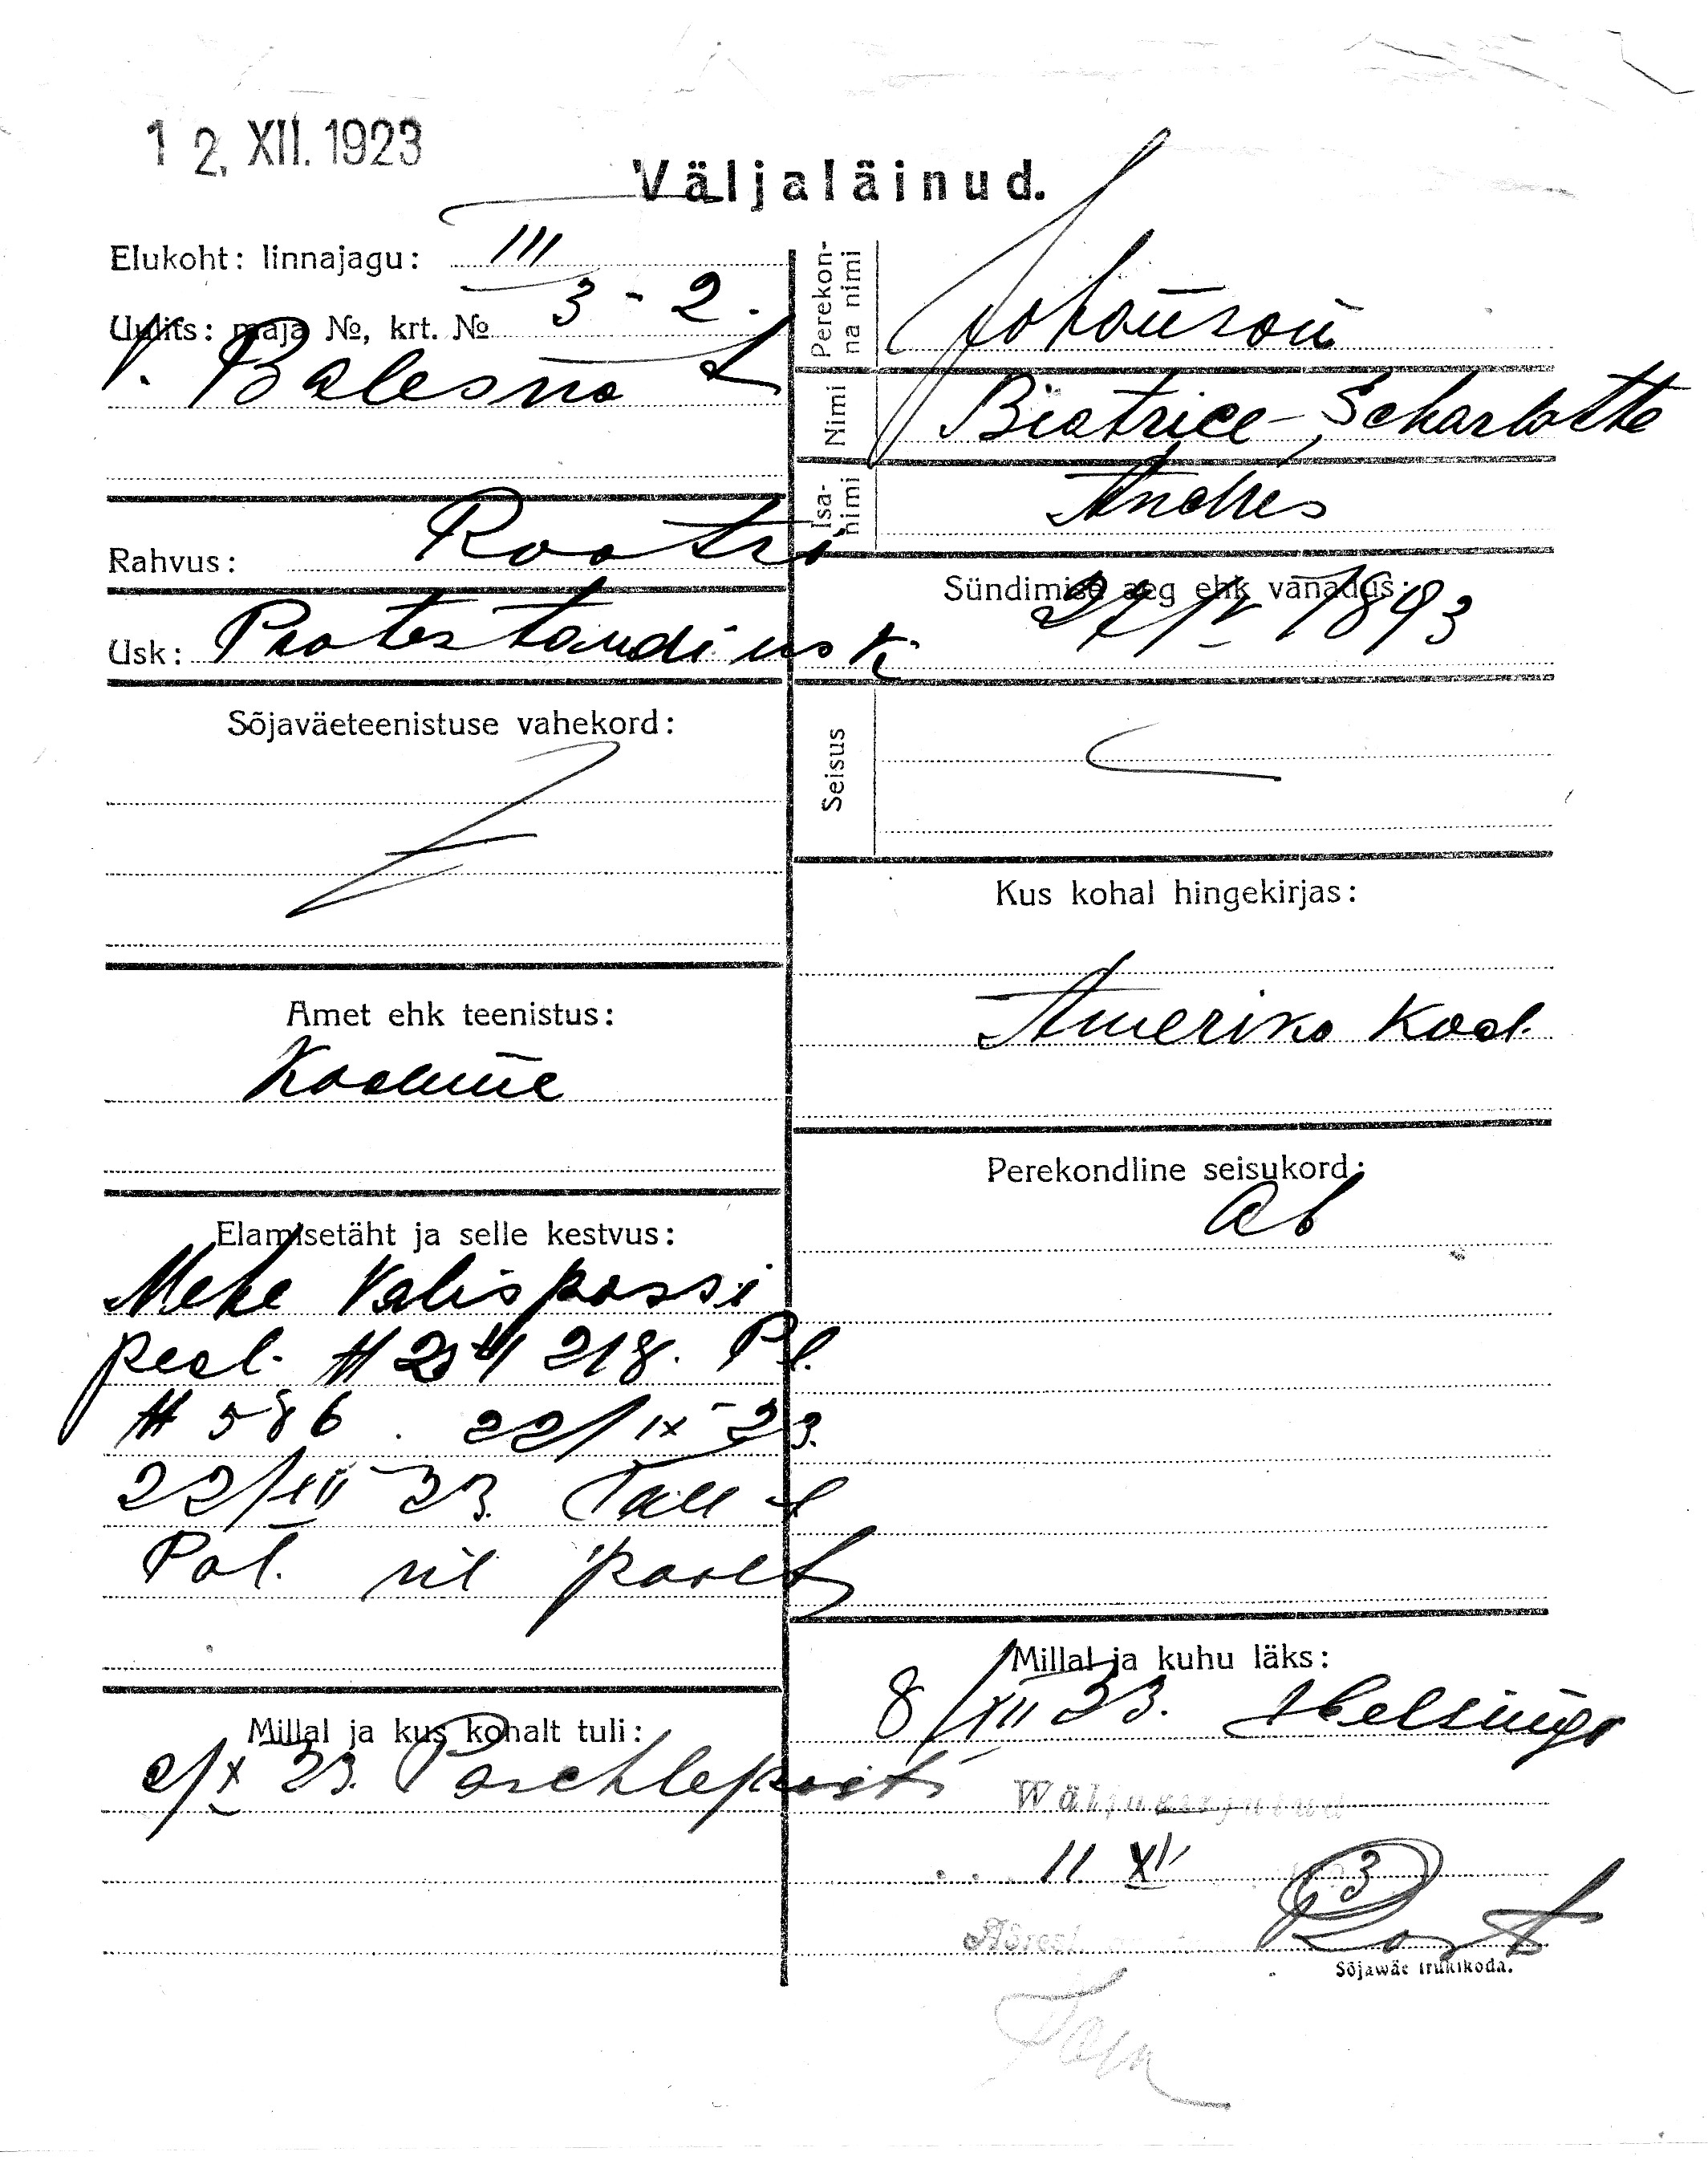 12. XII. 1923
Väljaläinud.
Elukoht: linnajagu: III
Uulits: maja №, krt. № 3-2.
V. Balesna t
Rahvus: Rootsi
Usk: Protestandi usk
Sõjaväeteenistuse vahekord:
Amet ehk teenistus:
Kodune
Elamisetäht ja selle kestvus:
Mehe Välispassi
peal. № 218. Pl.
№ 586. 22/IX 23.
22/XII 23. Tall l
Pol. paolt
Millal ja kus kohalt tuli:
23.
Perekonna nimi Johanson
Nimi Beatrice-Scharlotte
Isanimi Andres
Sündimise aeg ehk vanadus:
1893
Seisus
Kus kohal hingekirjas:
Amerika kod.
Perekondline seisukord:
Ab
Millal ja kuhu läks:
8/XII 23. Helsingi
Wäljakirjutud
11 XII 3
Sõjawäe trükikoda.